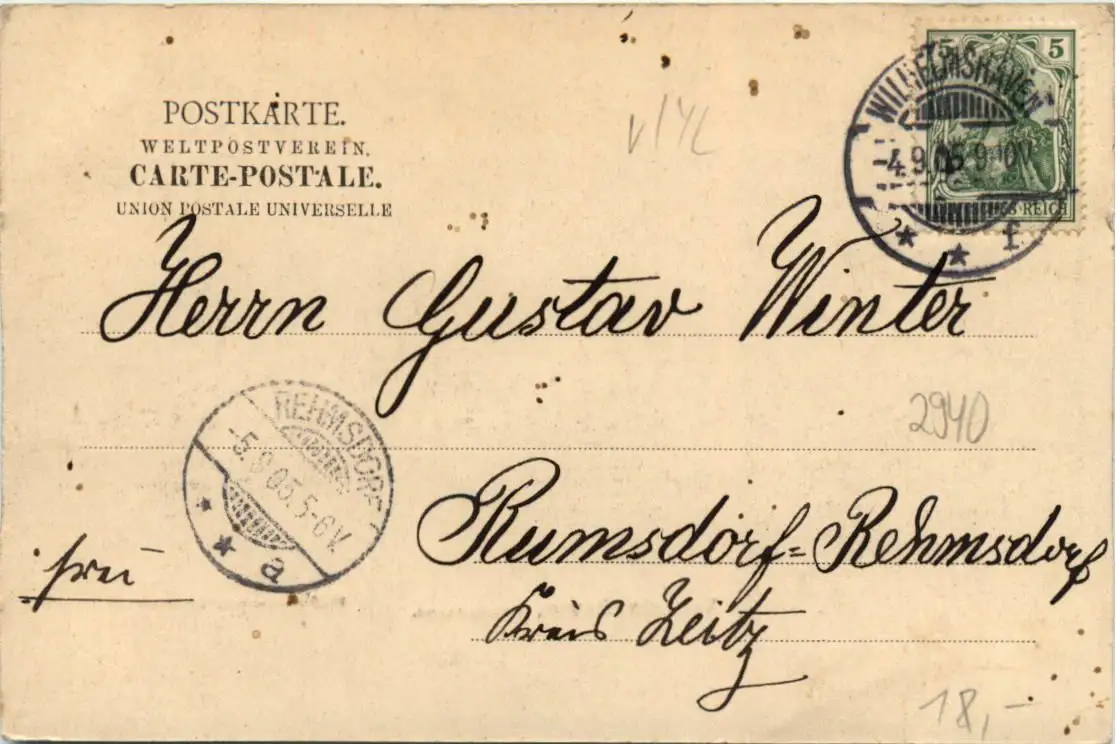 POSTKARTE.
WELTPOSTVEREIN.
CARTE-POSTALE.
UNION POSTALE UNIVERSELLE
5 5
REICH
WILHELMSHAVEN
4.9.05.9-10V.
* * f
Herrn Gustav Winter
2940
REHMSDORF
-5.9.05.5-6V.
* * a
Rumsdorf=Rehmsdorf
frei
Kreis Zeitz
18,-